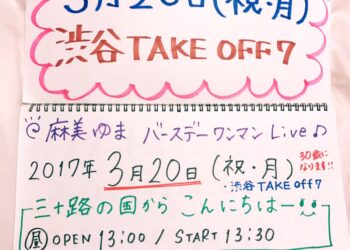 3月20日(祝・月)
渋谷 TAKE OFF 7
@麻美ゆま バースデーワンマン Live♪
2017年 3月20日 (祝・月)
30歳になります!!
・渋谷 TAKE OFF 7
三十路の国から こんにちはー
昼 OPEN 13:00 / START 13:30